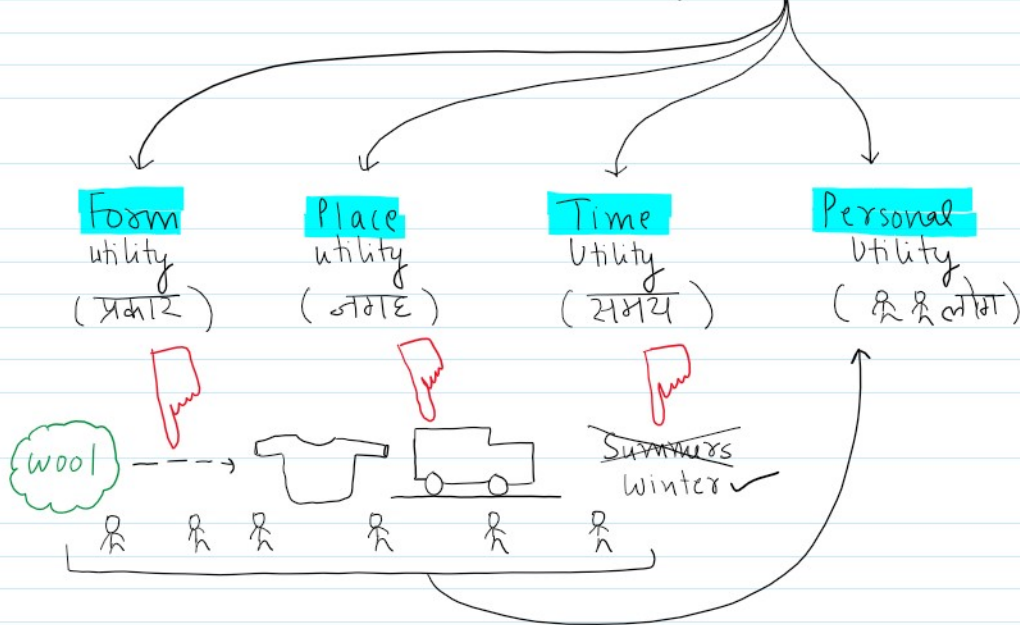 Form
utility
(प्रकार)
Place
utility
(जगह)
Time
Utility
(समय)
Personal
Utility
(लोग)
wool
Summers
Winter